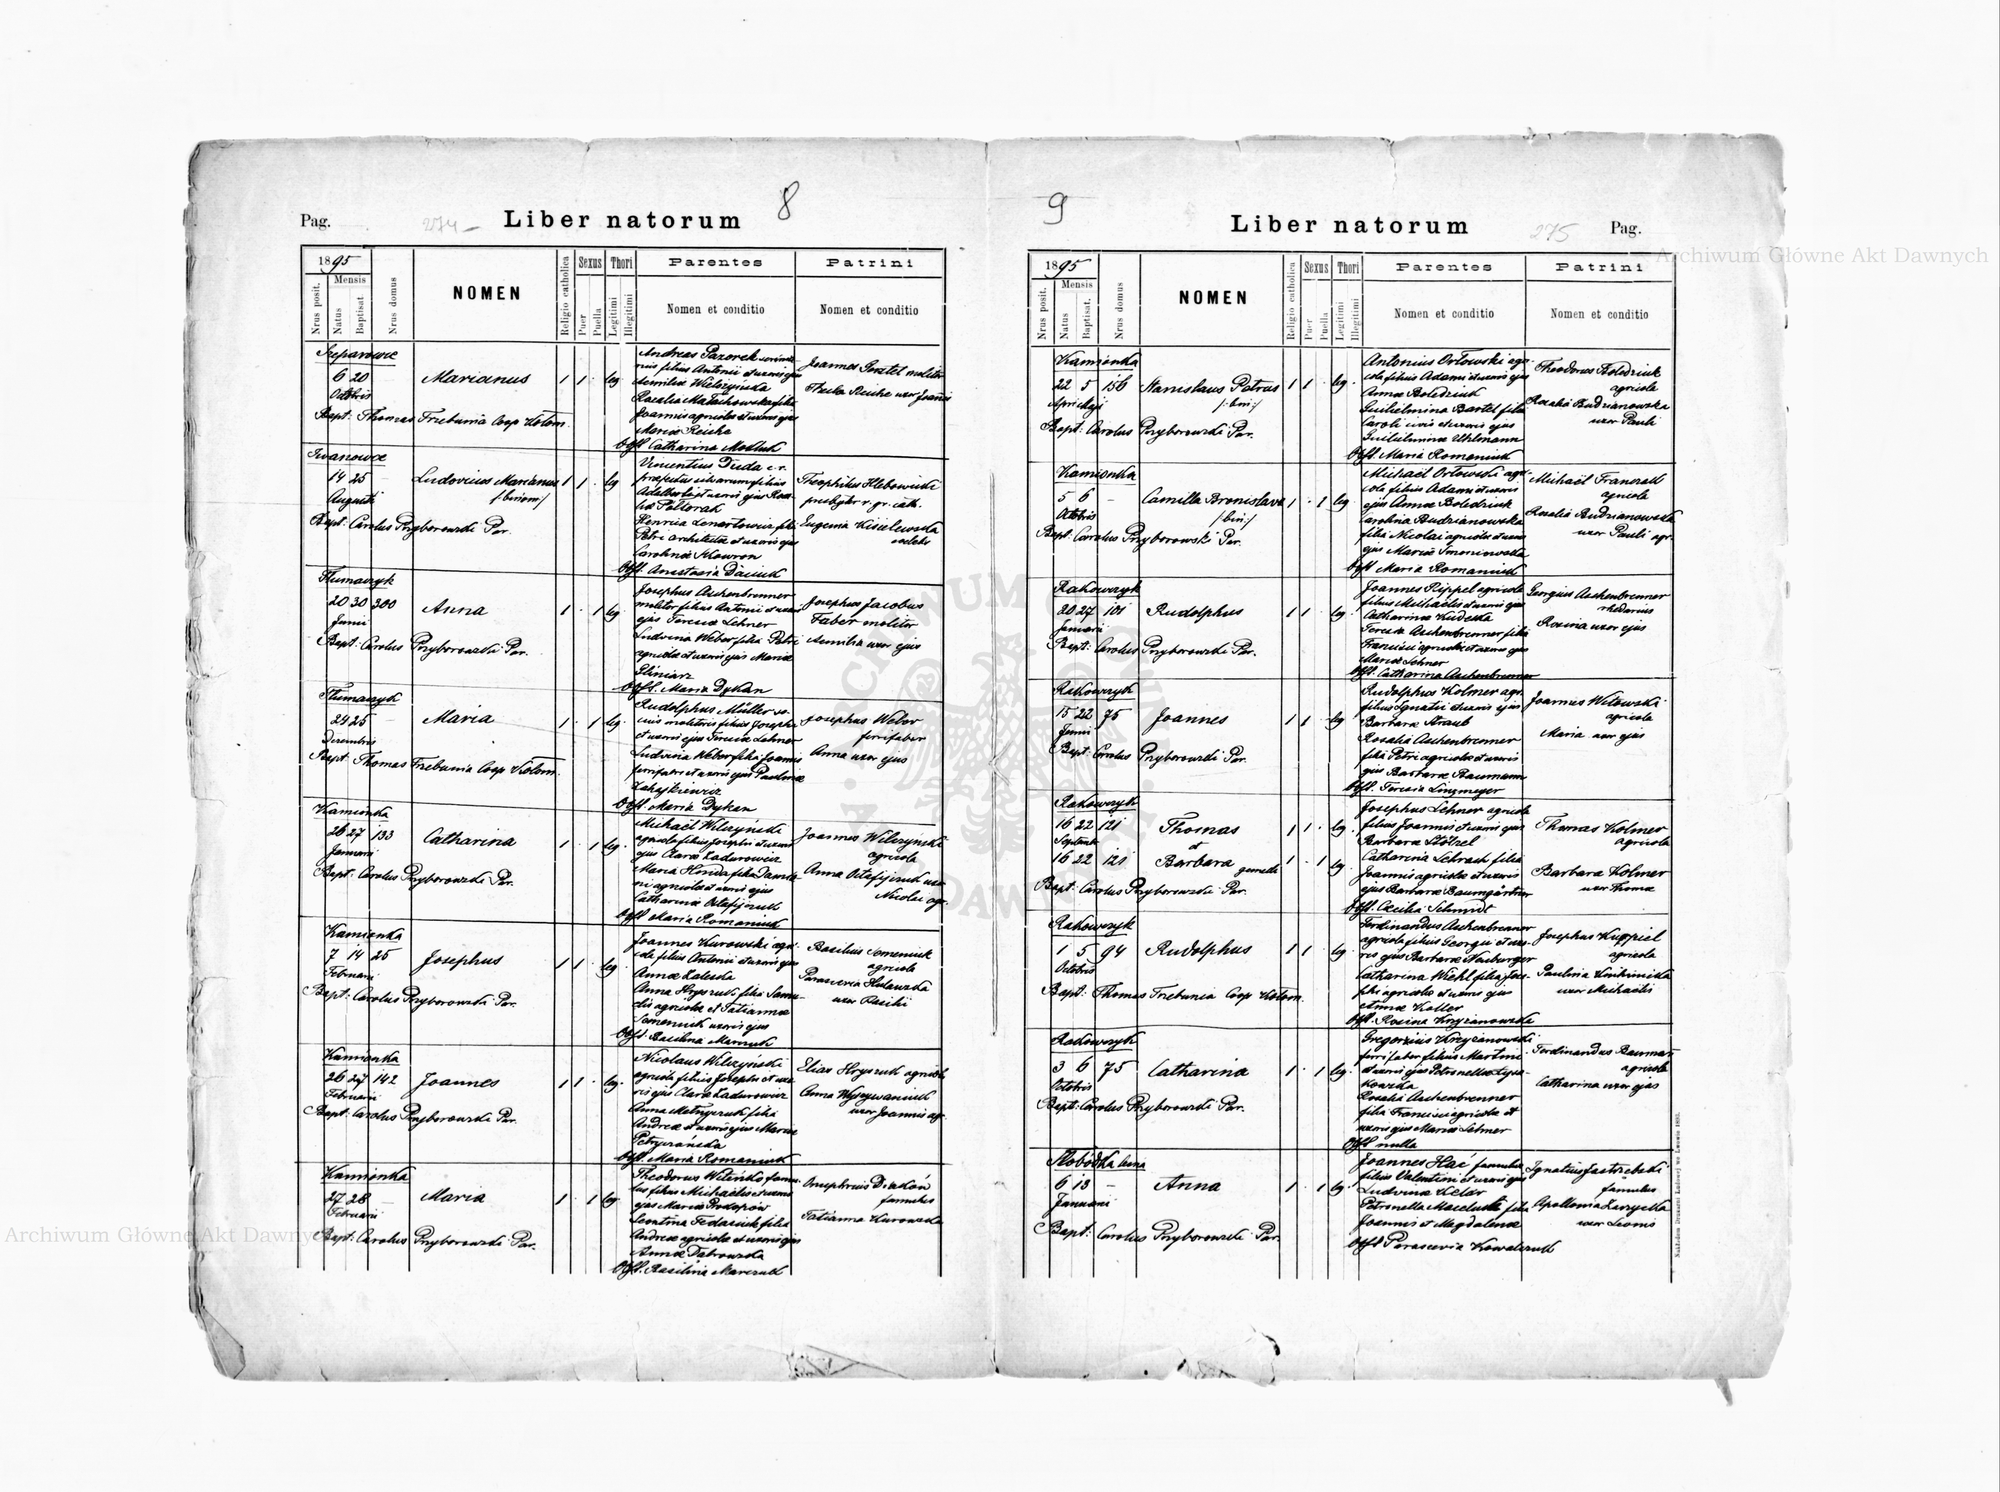 Pag.
274
Liber natorum
8
1895
Nrus posit.
Mensis
Natus
Baptisat.
Nrus domus
NOMEN
Religio catholica
Sexus
Puer
Puella
Thori
Legitimi
Illegitimi
Parentes
Nomen et conditio
Patrini
Nomen et conditio
Szeparowce
6 20
Octobris
Marianus
1 1 leg.
Andreas Pazorek
filius Antonii et uxoris ejus
Aemiliæ Wilczyńska
Rosalia Małachowska filia
Joannis agricolæ et uxoris ejus
Mariæ Reicha
Obst. Catharina
Joannes molitor
Thecla Reiche uxor Joannis
Bapt: Thomas Trzebunia Coop Kołom.
Iwanowce
14 25
Augusti
Ludovicus Marianus
/:binom:/
1 1 leg
Vincentius Duda c. r.
præfectus silvarum filius
Adalberti et uxoris ejus
Półtorak
Henrica Lenartowicz filia
Petri architectæ et uxoris ejus
Carolinæ Skowron
Obst. Anastasia
Theophilus Hlebowicki
presbyter r. gr. cath.
Eugenia Kisielewska
Bapt: Carolus Przyborowski Par.
Tłumaczyk
20 30 300
Junii
Anna
1 1 leg
Josephus Aschenbrenner
molitor filius Antonii et uxoris
ejus Teresiæ Lehner
Ludvina Weber filia Petri
agricolæ et uxoris ejus Mariæ
Obst. Maria Dykan
Josephus Jacobus
Faber molitor
Aemilia uxor ejus
Bapt: Carolus Przyborowski Par.
Tłumaczyk
24 25
Decembris
Maria
1 1 leg.
Rudolphus Müller
molitoris filius Josephi
et uxoris ejus Teresiæ Lehner
Ludvina Weber filia Joannis
ferrifabri et uxoris ejus Paulinæ
Zahajkiewicz
Obst. Maria Dykan
Josephus Weber
ferrifaber
Anna uxor ejus
Bapt: Thomas Trzebunia Coop Kołom.
Kamionka
26 27 133
Januarii
Catharina
1 1 leg.
Michaël Wilczyński
agricola filius Josephi et uxoris
ejus Claræ Ładurowicz
Maria filia
agricolæ et uxoris ejus
Catharinæ Ostafijczuk
Obst Maria Romaniuk
Joannes Wilczyński
agricola
Anna Ostafijczuk uxor
Nicolai agr.
Bapt: Carolus Przyborowski Par.
Kamionka
7 14 25
Februarii
Josephus
1 1 leg.
Joannes Kurowski agri-
cola filius Antonii et uxoris ejus
Annæ Zaleska
Anna Hryszuk filia Samu-
elis agricolæ et Tatiannæ
Semeniuk uxoris ejus
Obst. Basilina Marczuk
Basilius Semeniuk
agricola
Parascevia
uxor Basilii
Bapt: Carolus Przyborowski Par.
Kamionka
26 27 142
Februarii
Joannes
1 1 leg.
Nicolaus Wilczyński
agricola filius Josephi et uxo-
ris ejus Claræ Ładurowicz
Anna filia
Andreæ et uxoris ejus Mariæ
Obst. Maria Romaniuk
Elias Hryszuk agricola
Anna
uxor Joannis agr.
Bapt: Carolus Przyborowski Par.
Kamionka
27 28
Februarii
Maria
1 1 leg
Theodorus famu-
lus filius Michaëlis et uxoris
ejus Mariæ Prokopów
Leontina Fedasiuk filia
Andreæ agricolæ et uxoris ejus
Annæ Dąbrowska
Obst. Basilina Marczuk
Onuphrius
famulus
Tatianna Kurowska
Bapt: Carolus Przyborowski Par.
9
Liber natorum
275
Pag.
1895
Nrus posit.
Mensis
Natus
Baptisat.
Nrus domus
NOMEN
Religio catholica
Sexus
Puer
Puella
Thori
Legitimi
Illegitimi
Parentes
Nomen et conditio
Patrini
Nomen et conditio
Kamionka
22 5 156
Aprilis Maji
Stanislaus Petrus
/:bin:/
1 1 leg.
Antonius Orłowski agri-
cola filius Adami et uxoris ejus
Annæ Boledziuk
Guilielmina Bartel filia
Caroli civis et uxoris ejus
Guilielminæ Uhlmann
Obst. Maria Romaniuk
Theodorus Boledziuk
agricola
Rosalia Budzianowska
uxor Pauli
Bapt: Carolus Przyborowski Par.
Kamionka
5 6
Octobris
Camilla Bronislava
/:bin:/
1 1 leg.
Michaël Orłowski agri-
cola filius Adami et uxoris
ejus Annæ Boledziuk
Carolina Budzianowska
filia Nicolai agricolæ et uxoris
ejus Mariæ
Obst Maria Romaniuk
Michaël
agricola
Rosalia Budzianowska
uxor Pauli agr.
Bapt: Carolus Przyborowski Par.
Rakowczyk
20 27 101
Januarii
Rudolphus
1 1 leg.
Joannes Rippel agricola
filius Michaëlis et uxoris ejus
Catharinæ
Teresia Aschenbrenner filia
Francisci agricolæ et uxoris ejus
Mariæ Lehner
Obst. Catharina Aschenbrenner
Georgius Aschenbrenner
rhedarius
Rosina uxor ejus
Bapt: Carolus Przyborowski Par.
Rakowczyk
15 22 75
Junii
Joannes
1 1 leg
Rudolphus Kolmer agr.
filius Ignatii et uxoris ejus
Barbaræ Straub
Rosalia Aschenbrenner
filia Petri agricolæ et uxoris
ejus Barbaræ Baumann
Obst. Teresia Linzmeyer
Joannes Witowski
agricola
Maria uxor ejus
Bapt: Carolus Przyborowski Par.
Rakowczyk
16 22 121
Septembr
16 22 121
Thomas
et
Barbara
gemelli
1 1 leg
1 1 leg.
Josephus Lehner agricola
filius Joannis et uxoris ejus
Barbaræ Stötzel
Catharina Schrach filia
Joannis agricolæ et uxoris
ejus Barbaræ Baumgärtner
Obst. Cecilia Schmidt
Thomas Kolmer
agricola
Barbara Kolmer
uxor Thomæ
Bapt: Carolus Przyborowski Par.
Rakowczyk
1 5 94
Octobris
Rudolphus
1 1 leg
Ferdinandus Aschenbrenner
agricola filius Georgii et uxo-
ris ejus Barbaræ Neuburger
Catharina Wiehl filia Jose-
phi agricolæ et uxoris ejus
Annæ Koller
Obst. Rosina Krzyżanowska
Josephus
agricola
Paulina
uxor Michaëlis
Bapt: Thomas Trzebunia Coop Kołom.
Rakowczyk
3 6 75
Octobris
Catharina
1 1 leg
Gregorius Krzyżanowski
ferrifaber filius Martini
et uxoris ejus Petronellæ
Rosalia Aschenbrenner
filia Francisci agricolæ et
uxoris ejus Mariæ Lehner
Obst nulla
Ferdinandus Bauman
agricola
Catharina uxor ejus
Bapt: Carolus Przyborowski Par.
Słobódka leśna
6 13
Januarii
Anna
1 1 leg
Joannes Hać famulus
filius Valentini et uxoris ejus
Ludvinæ
Petronella filia
Joannis et Magdalenæ
Obst Parascevia Kowalczuk
Ignatius Jastrzebski
famulus
Apollonia
uxor Leonis
Bapt: Carolus Przyborowski Par.
Nakładem Drukarni Ludowej we Lwowie 1882.
Archiwum Główne Akt Dawnych
Archiwum Główne Akt Dawnych